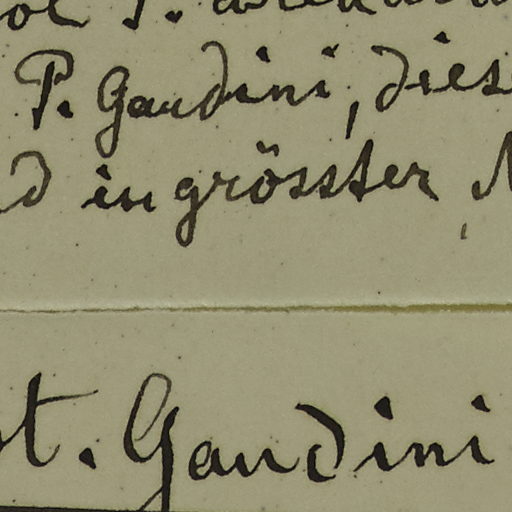 P. Gaudini, dies
in grösster
t. Gaudini